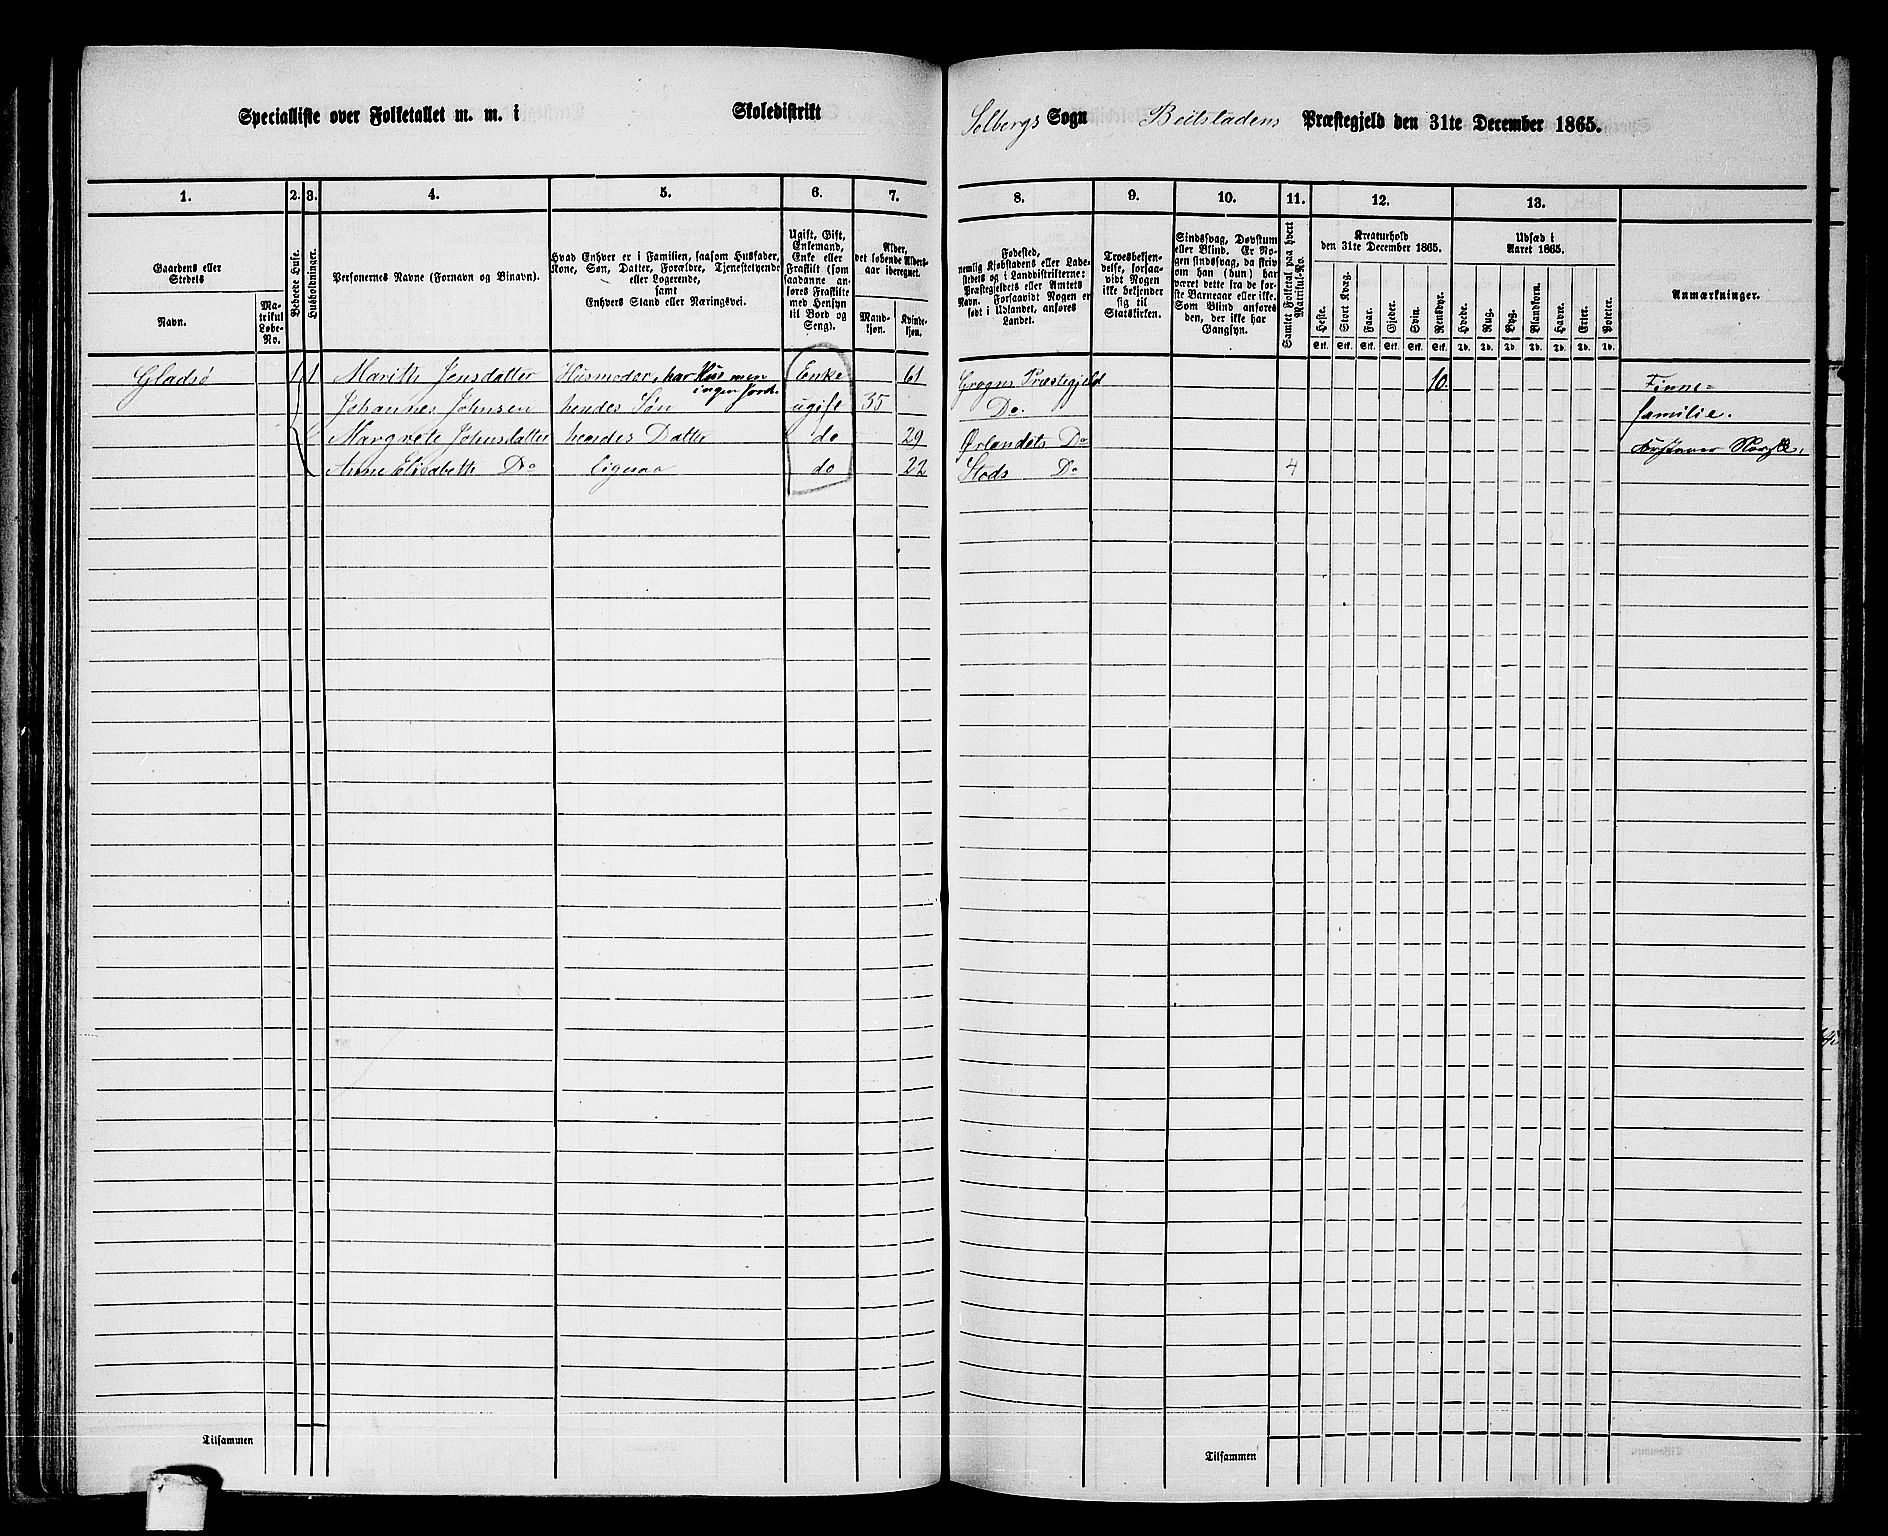 Specialliste over Folketallet m. m. i Skoledistrikt Solbergs Sogn Beitstadens Præstegjeld den 31te December 1865.
1. 2. 3. 4. 5. 6. 7. 8. 9. 10. 11. 12. 13.
Gaardens eller
Stedets
Navn.
Ma-
trikul
Løbe-
No.
Beboede Huse.
Husholdninger.
Personernes Navne (Fornavn og Binavn).
Hvad Enhver er i Familien, saasom Husfader,
Kone, Søn, Datter, Forældre, Tjenestetyende
eller Logerende,
samt
Enhvers Stand eller Næringsvei.
Ugift, Gift,
Enkemand,
Enke eller
Fraskilt (som
saadanne an-
føres Fraskilte
med Hensyn
til Bord og
Seng).
Alder,
det løbende Alders-
aar iberegnet.
Mand-
kjøn.
Kvinde-
kjøn.
Fødested,
nemlig Kjøbstadens eller Lade-
stedets og i Landdistrikterne:
Præstegjeldets eller Amtets
Navn. Forsaavidt Nogen er
født i Udlandet, anføres
Landet.
Troesbekjen-
delse, forsaa-
vidt Nogen
ikke bekjender
sig til
Statskirken.
Sindssvag, Døvstum
eller Blind. Er No-
gen sindssvag, da skriv
om han (hun) har
været dette fra de før-
ste Barneaar eller ikke.
Som Blind anføres
den, der ikke har
Gangsyn.
Samlet Folketal paa hvert
Matrikul-No.
Kreaturhold
den 31te December 1865.
Heste.
Stort Kvæg.
Faar.
Gjeder.
Svin.
Rensdyr.
Stk. Stk. Stk. Stk. Stk. Stk.
Udsæd i
Aaret 1865.
Hvede.
Rug.
Byg.
Blandkorn.
Havre.
Erter.
Poteter.
Td. Td. Td. Td. Td. Td. Td.
Anmærkninger.
Gladsø 1 1 Marith Jensdatter Husmoder, har Hus men Enke 61 Grogns Præstegjeld 10. Finne=
ingen Jord.
Johannes Johnsen hendes Søn ugift 35 Do. familie.
Margrete Johnsdatter hendes Datter do 29 Ørlandets Do
Anne Elisabeth Do ligesaa do 22 Stods Do 4
Tilsammen
Tilsammen